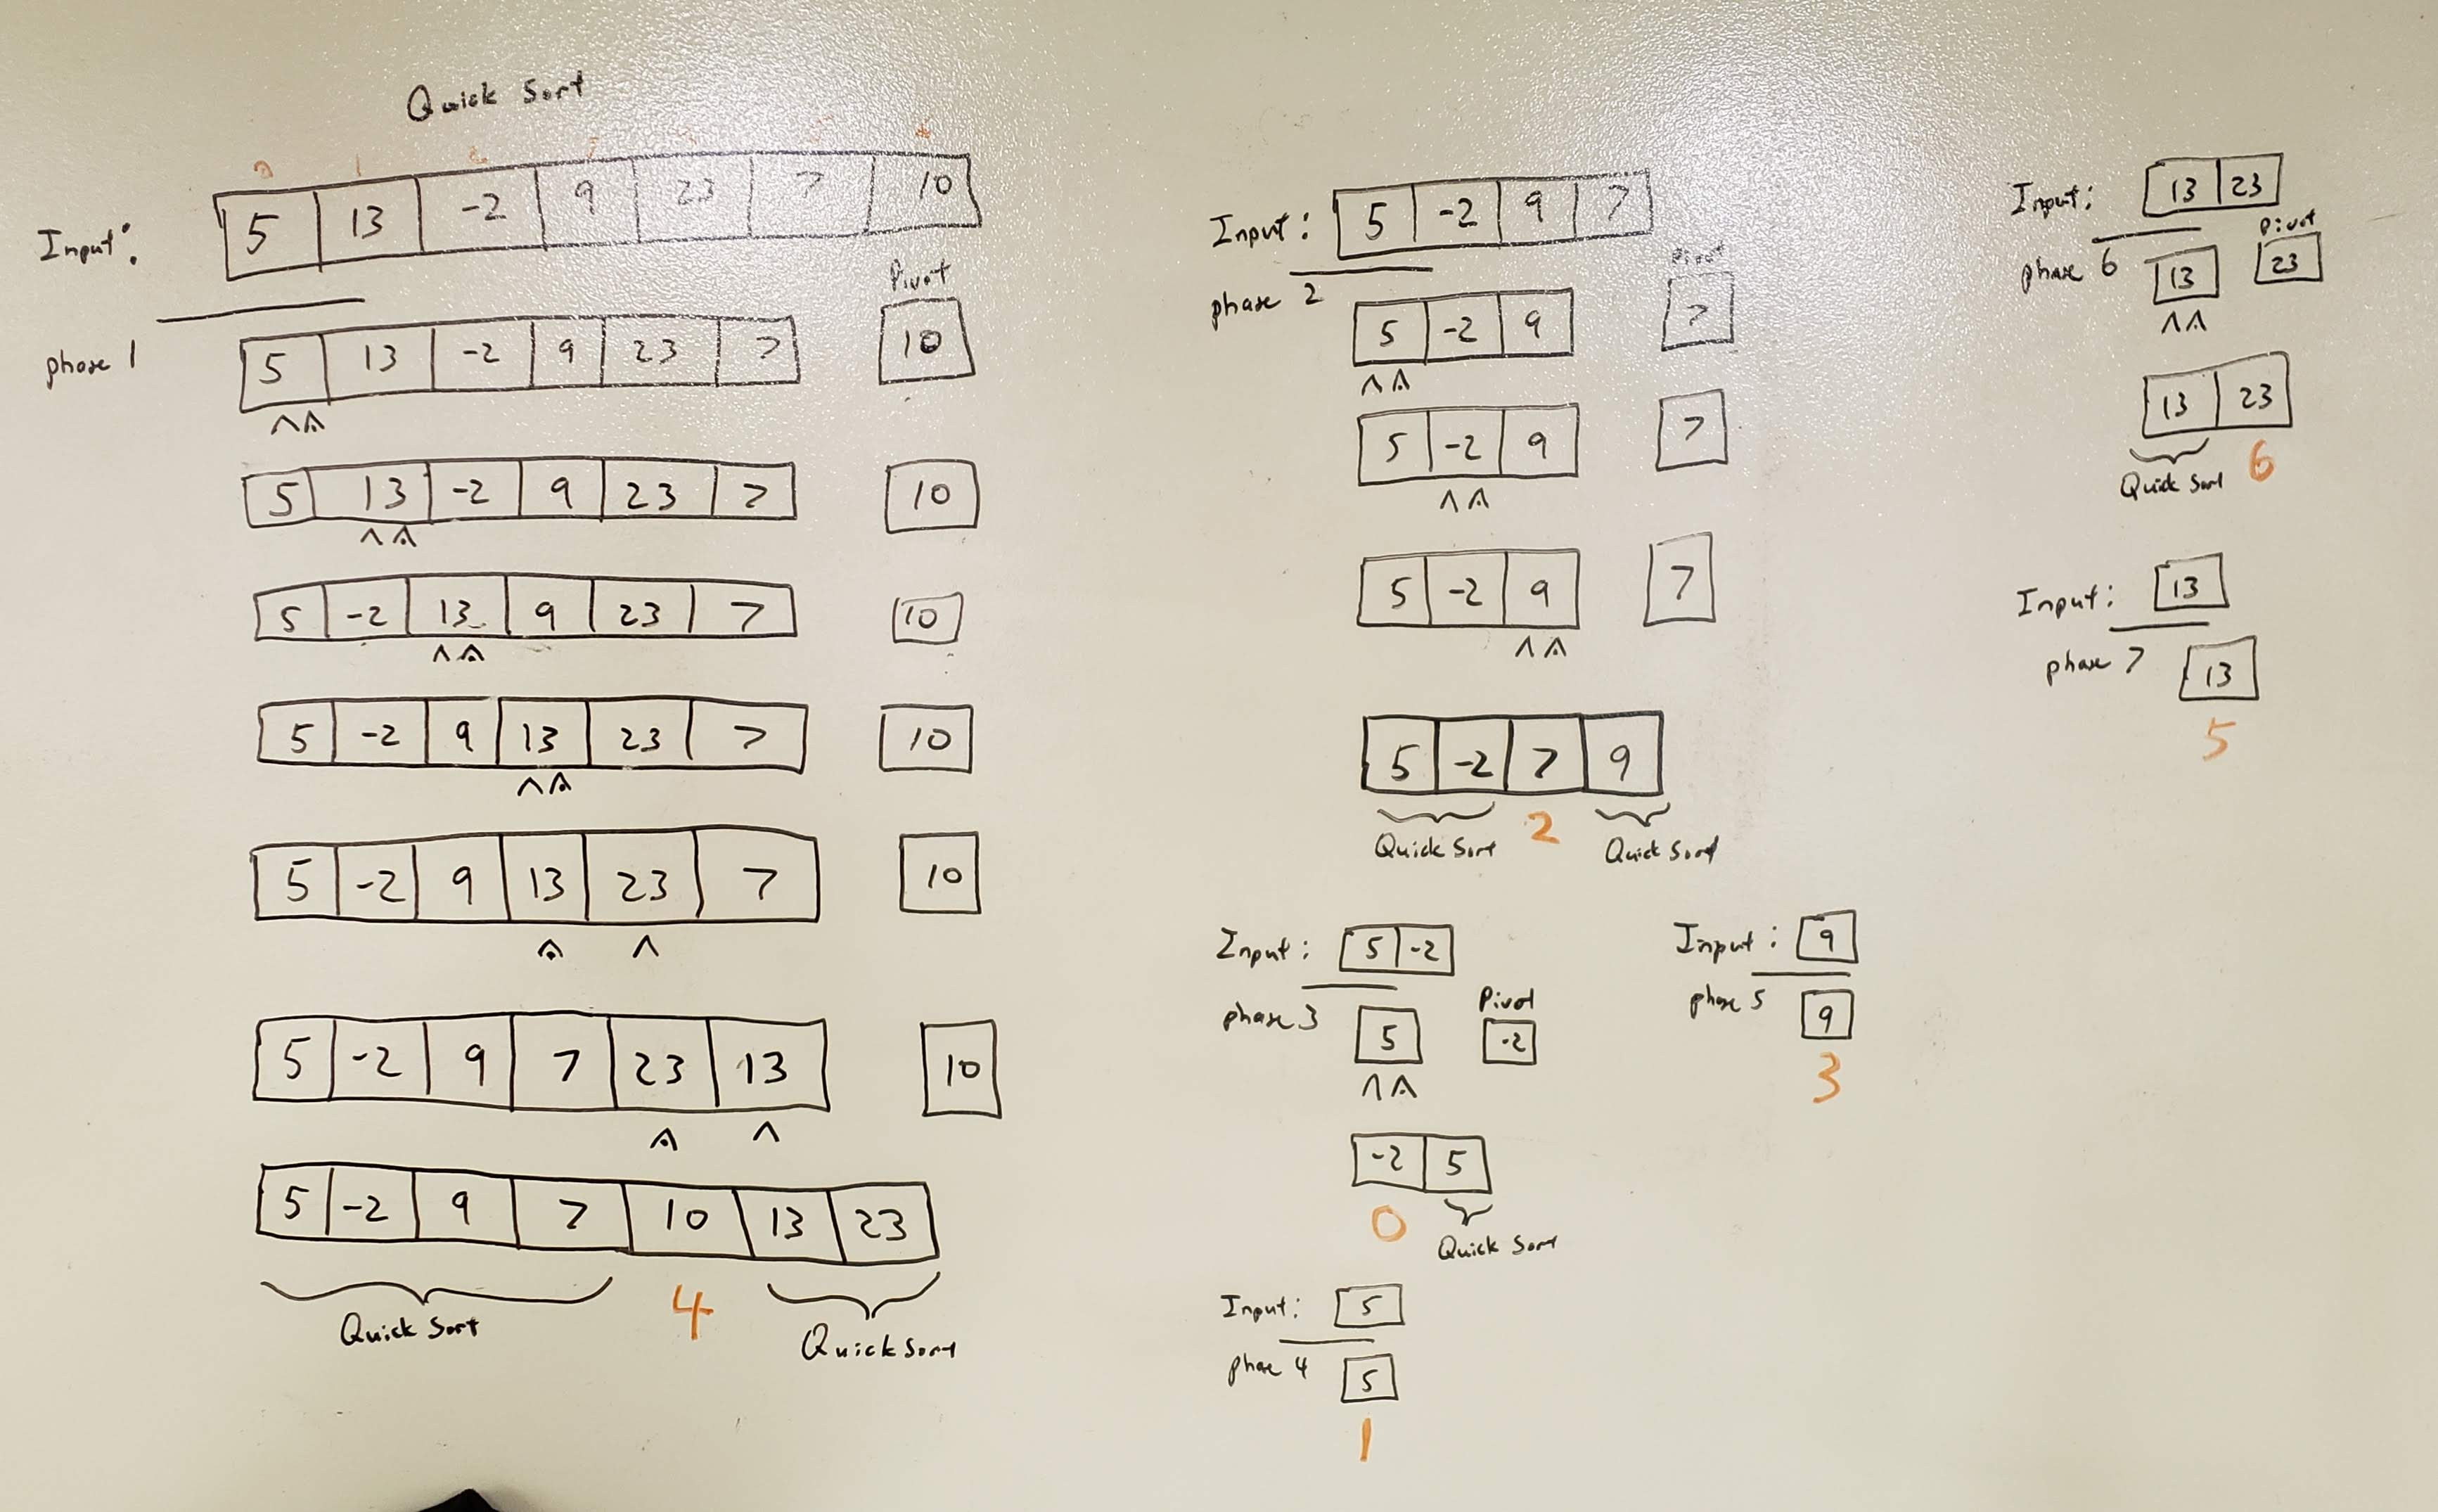 Quick Sort
Input: 5 13 -2 9 23 7 10
Pivot
phase 1 5 13 -2 9 23 7 10
^ ^
5 13 -2 9 23 7 10
^ ^
5 -2 13 9 23 7 10
^ ^
5 -2 9 13 23 7 10
^ ^
5 -2 9 13 23 7 10
^ ^
5 -2 9 7 23 13 10
^ ^
5 -2 9 7 10 13 23
Quick Sort 4 Quick Sort
Input: 5 -2 9 7
Pivot
phase 2 5 -2 9 7
^ ^
5 -2 9 7
^ ^
5 -2 9 7
^ ^
5 -2 7 9
Quick Sort 2 Quick Sort
Input: 5 -2
Pivot
phase 3 5 -2
^ ^
-2 5
0 Quick Sort
Input: 5
phase 4 5
1
Input: 9
phase 5 9
3
Input: 13 23
Pivot
phase 6 13 23
^ ^
13 23
Quick Sort 6
Input: 13
phase 7 13
5